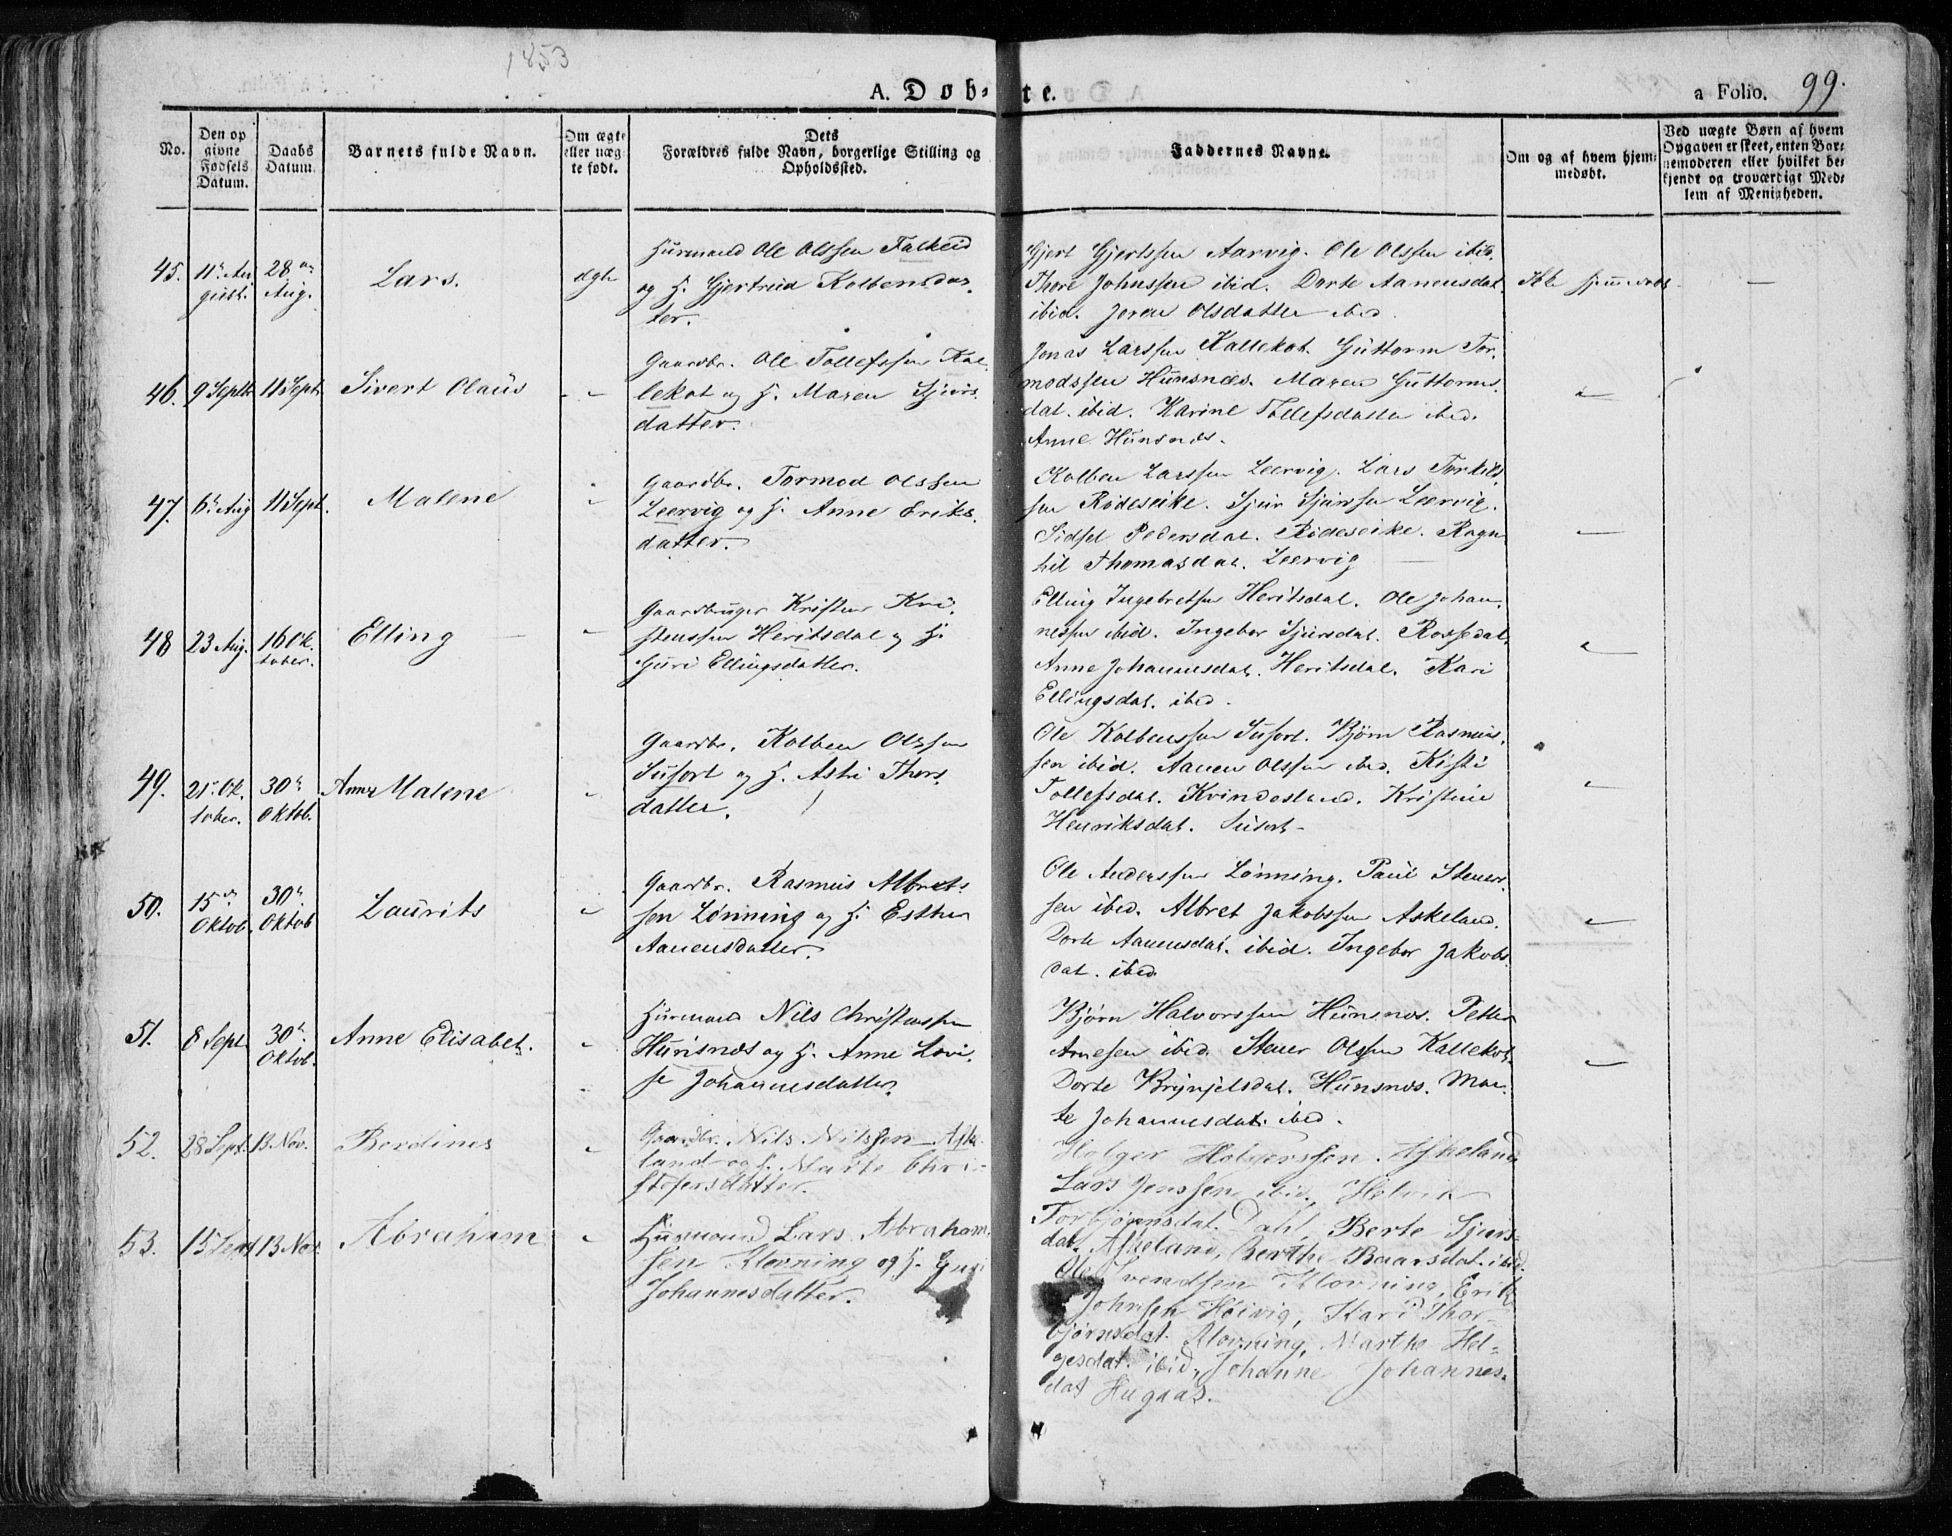 1853
A. Døb-te.
a Folio. 99.
No.
Den op
givne
Fødsels
Datum.
Daabs
Datum.
Barnets fulde Navn.
Om ægte
eller uæg-
te født.
Dets
Forældres fulde Navn, borgerlige Stilling og
Opholdssted.
Faddernes Navne.
Om og af hvem hjem-
medøbt.
Ved uægte Børn af hvem
Opgaven er skeet, enten Bar-
nemoderen eller hvilket be-
kjendt og troværdigt Med-
lem af Menigheden.
45.
11te Au
gust.
28
Aug.
Lars.
ægte
Huusmand Ole Olssen Falkeid
og H. Gjertrud Kolbensdat-
ter.
Gjert Gjertssen Aarvig. Ole Olssen ibid.
Thore Johnssen ibid. Dorte Aanensdat.
ibid. Joren Olsdatter ibid.
46.
9 Septb.
11 Sept.
Sivert Olaüs
Gaardbr. Ole Tollefssen Kal
lekot og H. Maren Sjurs
datter.
Jonas Larssen Kallekot. Guttorm Tor-
modssen Hunsnæs. Maren Guttorms
dat. ibid. Karine Tollefsdatter ibid.
Anne Hunsnæs.
47.
6te Aug
11 Sept.
Malene
Gaardbr. Tormod Olssen
Leervig og H. Anne Eriks
datter.
Kolben Larssen Leervig. Lars Torkils
sen Rødeseike. Sjur Sjursen Leervig.
Sidsel Pedersdat. Rødeseike. Ragn
hil Thomasdat. Leervig
48
23 Aug.
16 Ok.
tober.
Elling
Gaardbruger Kristen Kri
stenssen Heritsdal og H.
Guri Ellingsdatter.
Elling Ingebretsen Heritsdal. Ole Johan
nessen ibid. Ingebor Sjursdat. Rossedal.
Anne Johannesdat. Heritsdal. Kari
Ellingsdat. ibid.
49.
21te Ok.
tober.
30te
Oktob.
Anne Malene
Gaardbr. Kolben Olssen
Susort og H. Astri Thors
datter.
Ole Kolbenssen Susort. Bjørn Rasmus
sen ibid. Aanen Olssen ibid. Kisti
Tollefsdat. Kvindesland. Kristine
Henriksdat. Susort
50.
15de
Oktob.
30te
Oktob
Laurits
Gaardbr. Rasmus Albret-
sen Lønning og H. Esther
Aanensdatter.
Ole Anderssen Lønning. Paul Stener
sen ibid. Albret Jakobssen Askeland.
Dorte Aanensdat. ibid. Ingebor Jakobs
dat. ibid
51.
8 Sept
30te
Oktob.
Anne Elisabet.
Huusmand Nils Christenssen
Hunsnæs og H. Anne Lovi-
se Johannesdatter.
Bjørn Halvorssen Hunsnæs. Petter
Arnesen ibid. Stener Olssen Kallekot
Dorte Brynjelsdat. Hunsnæs. Mar-
te Johannesdat. ibid.
52.
28 Sept.
13 Nov.
Berdines
Gaardbr. Nils Nilssen Aske
land og H. Marte Chri-
stofersdatter.
Holger Holgerssen Askeland
Lars Jenssen ibid, Helvik
Torbjørnsdat. Dahl, Berte Sjurs-
dat. Askeland, Berthe Baarsdat. ibid.
53.
15 Sept
13 Nov.
Abraham
Huusmand Lars Abraham
sen Klovning og H. Guri
Johannesdatter.
Ole Svendsen Klovning, Erik
Johnsen Høivig, Kari Thor-
bjørnsdat Klovning, Marthe Hel-
gesdat. ibid, Johanne Johannes-
dat Hugaas.